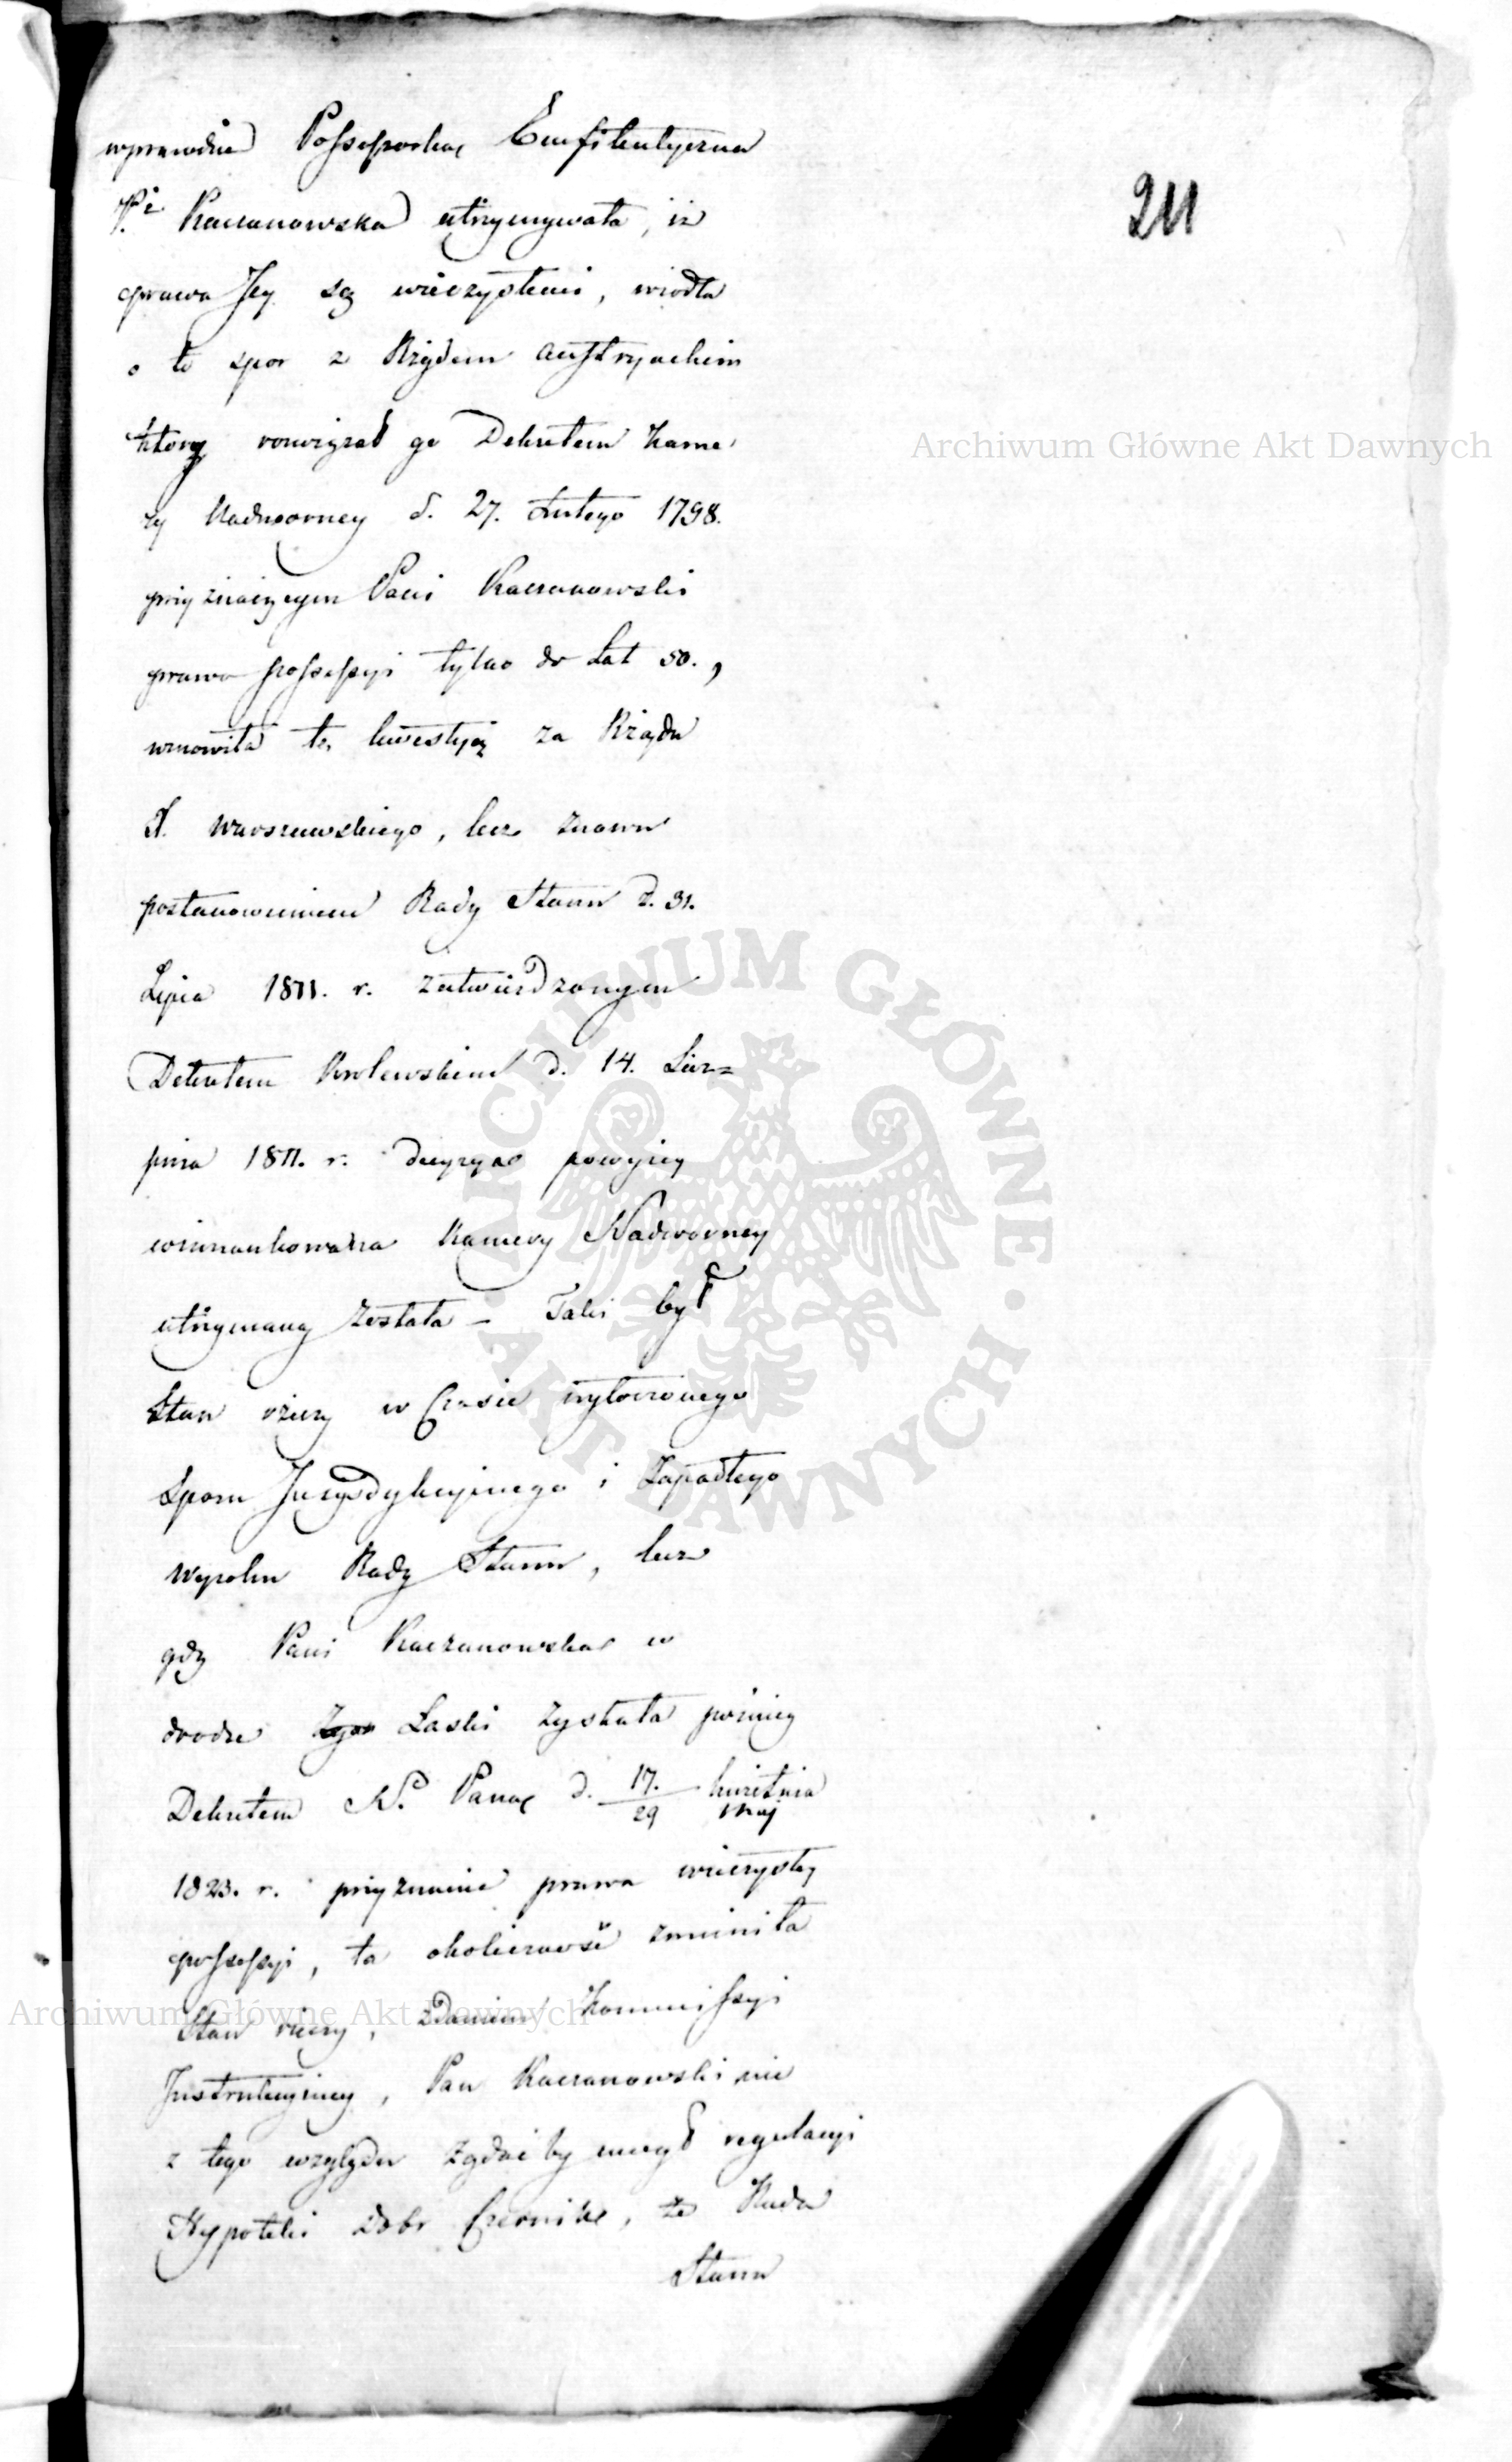 211
wprawdzie Possessorka Emfiteutyczna
P.i Kaczanowska utrzymywała, iż
prawa Jey są wieczystemi, wiodła
o to spor z Rządem Austryackim
ktory rozwiązał go Dekretem Kame,
ry Nadworney d. 27. Lutego 1798.
przyznaiącym Pani Kaczanowski
prawo possessyi tylko do Lat 50.,
wznowiła tę kwestyią za Rządu
X. Warszawskiego, lecz znowu
postanowieniem Rady Stanu d. 31.
Lipca 1811. r. zatwierdzonym
Dekretem Krolewskim d. 14. Sier=
pnia 1811. r. decyzya powyżey
wzmiankowana Kamery Nadworney
utrzymaną została – Taki był
Stan rzeczy w Czasie wytoczonego
Sporu Jurysdykcyinego i Zapadłego
Wyroku Rady Stanu, lecz
gdy Pani Kaczanowska w
drodze Łaski zyskała poźniey
Dekretem N. Pana d. 17./29 kwietnia/maj
1823. r. przyznanie prawa wieczystey
possessyi, ta okoliczność zmieniła
Stan rzeczy, zdaniem Kommissyi
Instrukcyiney, Pan Kaczanowski nie
z tego względu żądać by mogł regulacyi
Hypoteki Dobr Czerniko, że Rada
Stanu
Archiwum Główne Akt Dawnych
ARCHIWUM GŁÓWNE · AKT DAWNYCH ·
Archiwum Główne Akt Dawnych